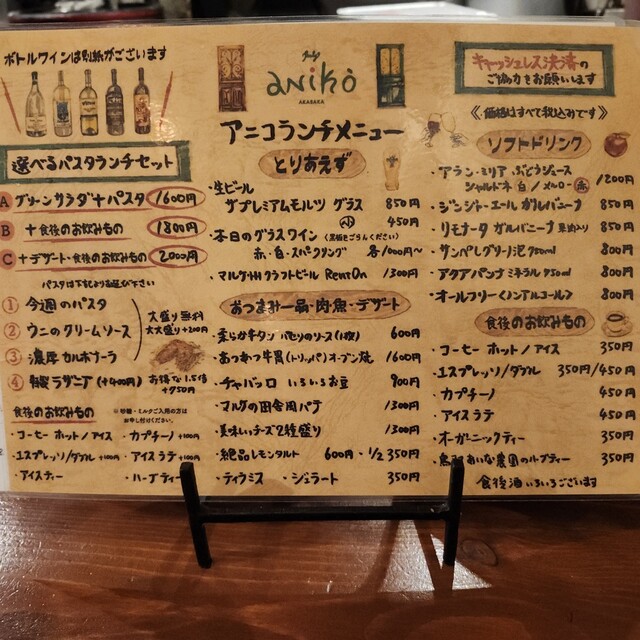 ボトルワインは別紙がございます
選べるパスタランチセット
A グリーンサラダ+パスタ 1600円
B +食後のお飲みもの 1800円
C +デザート・食後のお飲みもの 2000円
パスタは下記よりお選び下さい
① 今週のパスタ
② ウニのクリームソース
③ 濃厚カルボナーラ
④ 特製ラザニア(+400円)
大盛り無料
大大盛り+200円
お得な1.5倍
+750円
食後のお飲みもの
※砂糖・ミルクご入用の方は
お申し付けください。
・コーヒー ホット/アイス
・カプチーノ+100円
・エスプレッソ/ダブル+100円
・アイスラテ+100円
・アイスティー
・ハーブティー
aniko
AKASAKA
アニコランチメニュー
とりあえず
・生ビール
ザプレミアムモルツ グラス 850円
小 450円
・本日のグラスワイン〈黒板をごらんください〉
赤・白・スパークリング 各1000円〜
・マルケ州クラフトビール RentOn 1300円
おつまみ一品・肉・魚・デザート
・柔らか牛タン パセリのソース(1枚) 600円
・あつあつ牛胃(トリッパ)オーブン焼 1600円
・チャバッロ いろいろお豆 900円
・マルケの田舎風パテ 1300円
・美味しいチーズ2種盛り 1300円
・絶品レモンタルト 600円・1/2 350円
・ティラミス ・ジェラート 350円
キャッシュレス決済の
ご協力をお願いします
《価格はすべて税込みです》
ソフトドリンク
・アラン・ミリア ぶどうジュース
シャルドネ 白/メルロー 赤 1200円
・ジンジャーエール ガルバニーナ 850円
・リモナータ ガルバニーナ 果肉入り 850円
・サンペレグリーノ 泡750ml 800円
・アクアパンナ ミネラル 750ml 800円
・オールフリー〈ノンアルコール〉 800円
食後のお飲みもの
・コーヒー ホット/アイス 350円
・エスプレッソ/ダブル 350円/450円
・カプチーノ 450円
・アイスラテ 450円
・オーガニックティー 350円
あいな農園のハーブティー 350円
食後酒いろいろございます